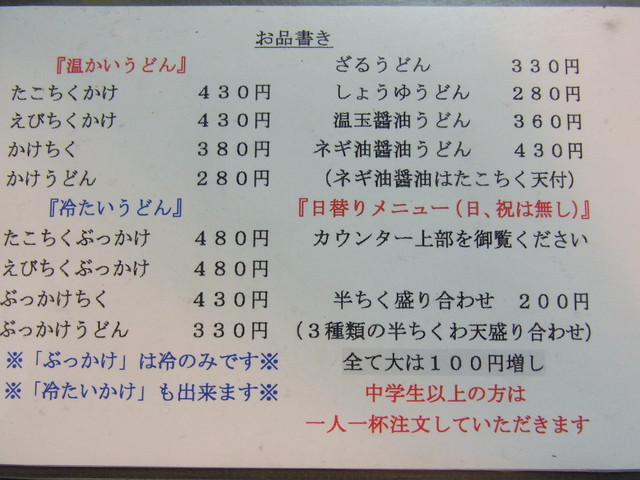 お品書き
『温かいうどん』
たこちくかけ　４３０円
えびちくかけ　４３０円
かけちく　３８０円
かけうどん　２８０円
『冷たいうどん』
たこちくぶっかけ　４８０円
えびちくぶっかけ　４８０円
ぶっかけちく　４３０円
ぶっかけうどん　３３０円
※「ぶっかけ」は冷のみです※
※「冷たいかけ」も出来ます※
ざるうどん　３３０円
しょうゆうどん　２８０円
温玉醤油うどん　３６０円
ネギ油醤油うどん　４３０円
（ネギ油醤油はたこちく天付）
『日替りメニュー（日、祝は無し）』
カウンター上部を御覧ください
半ちく盛り合わせ　２００円
（３種類の半ちくわ天盛り合わせ）
全て大は１００円増し
中学生以上の方は
一人一杯注文していただきます